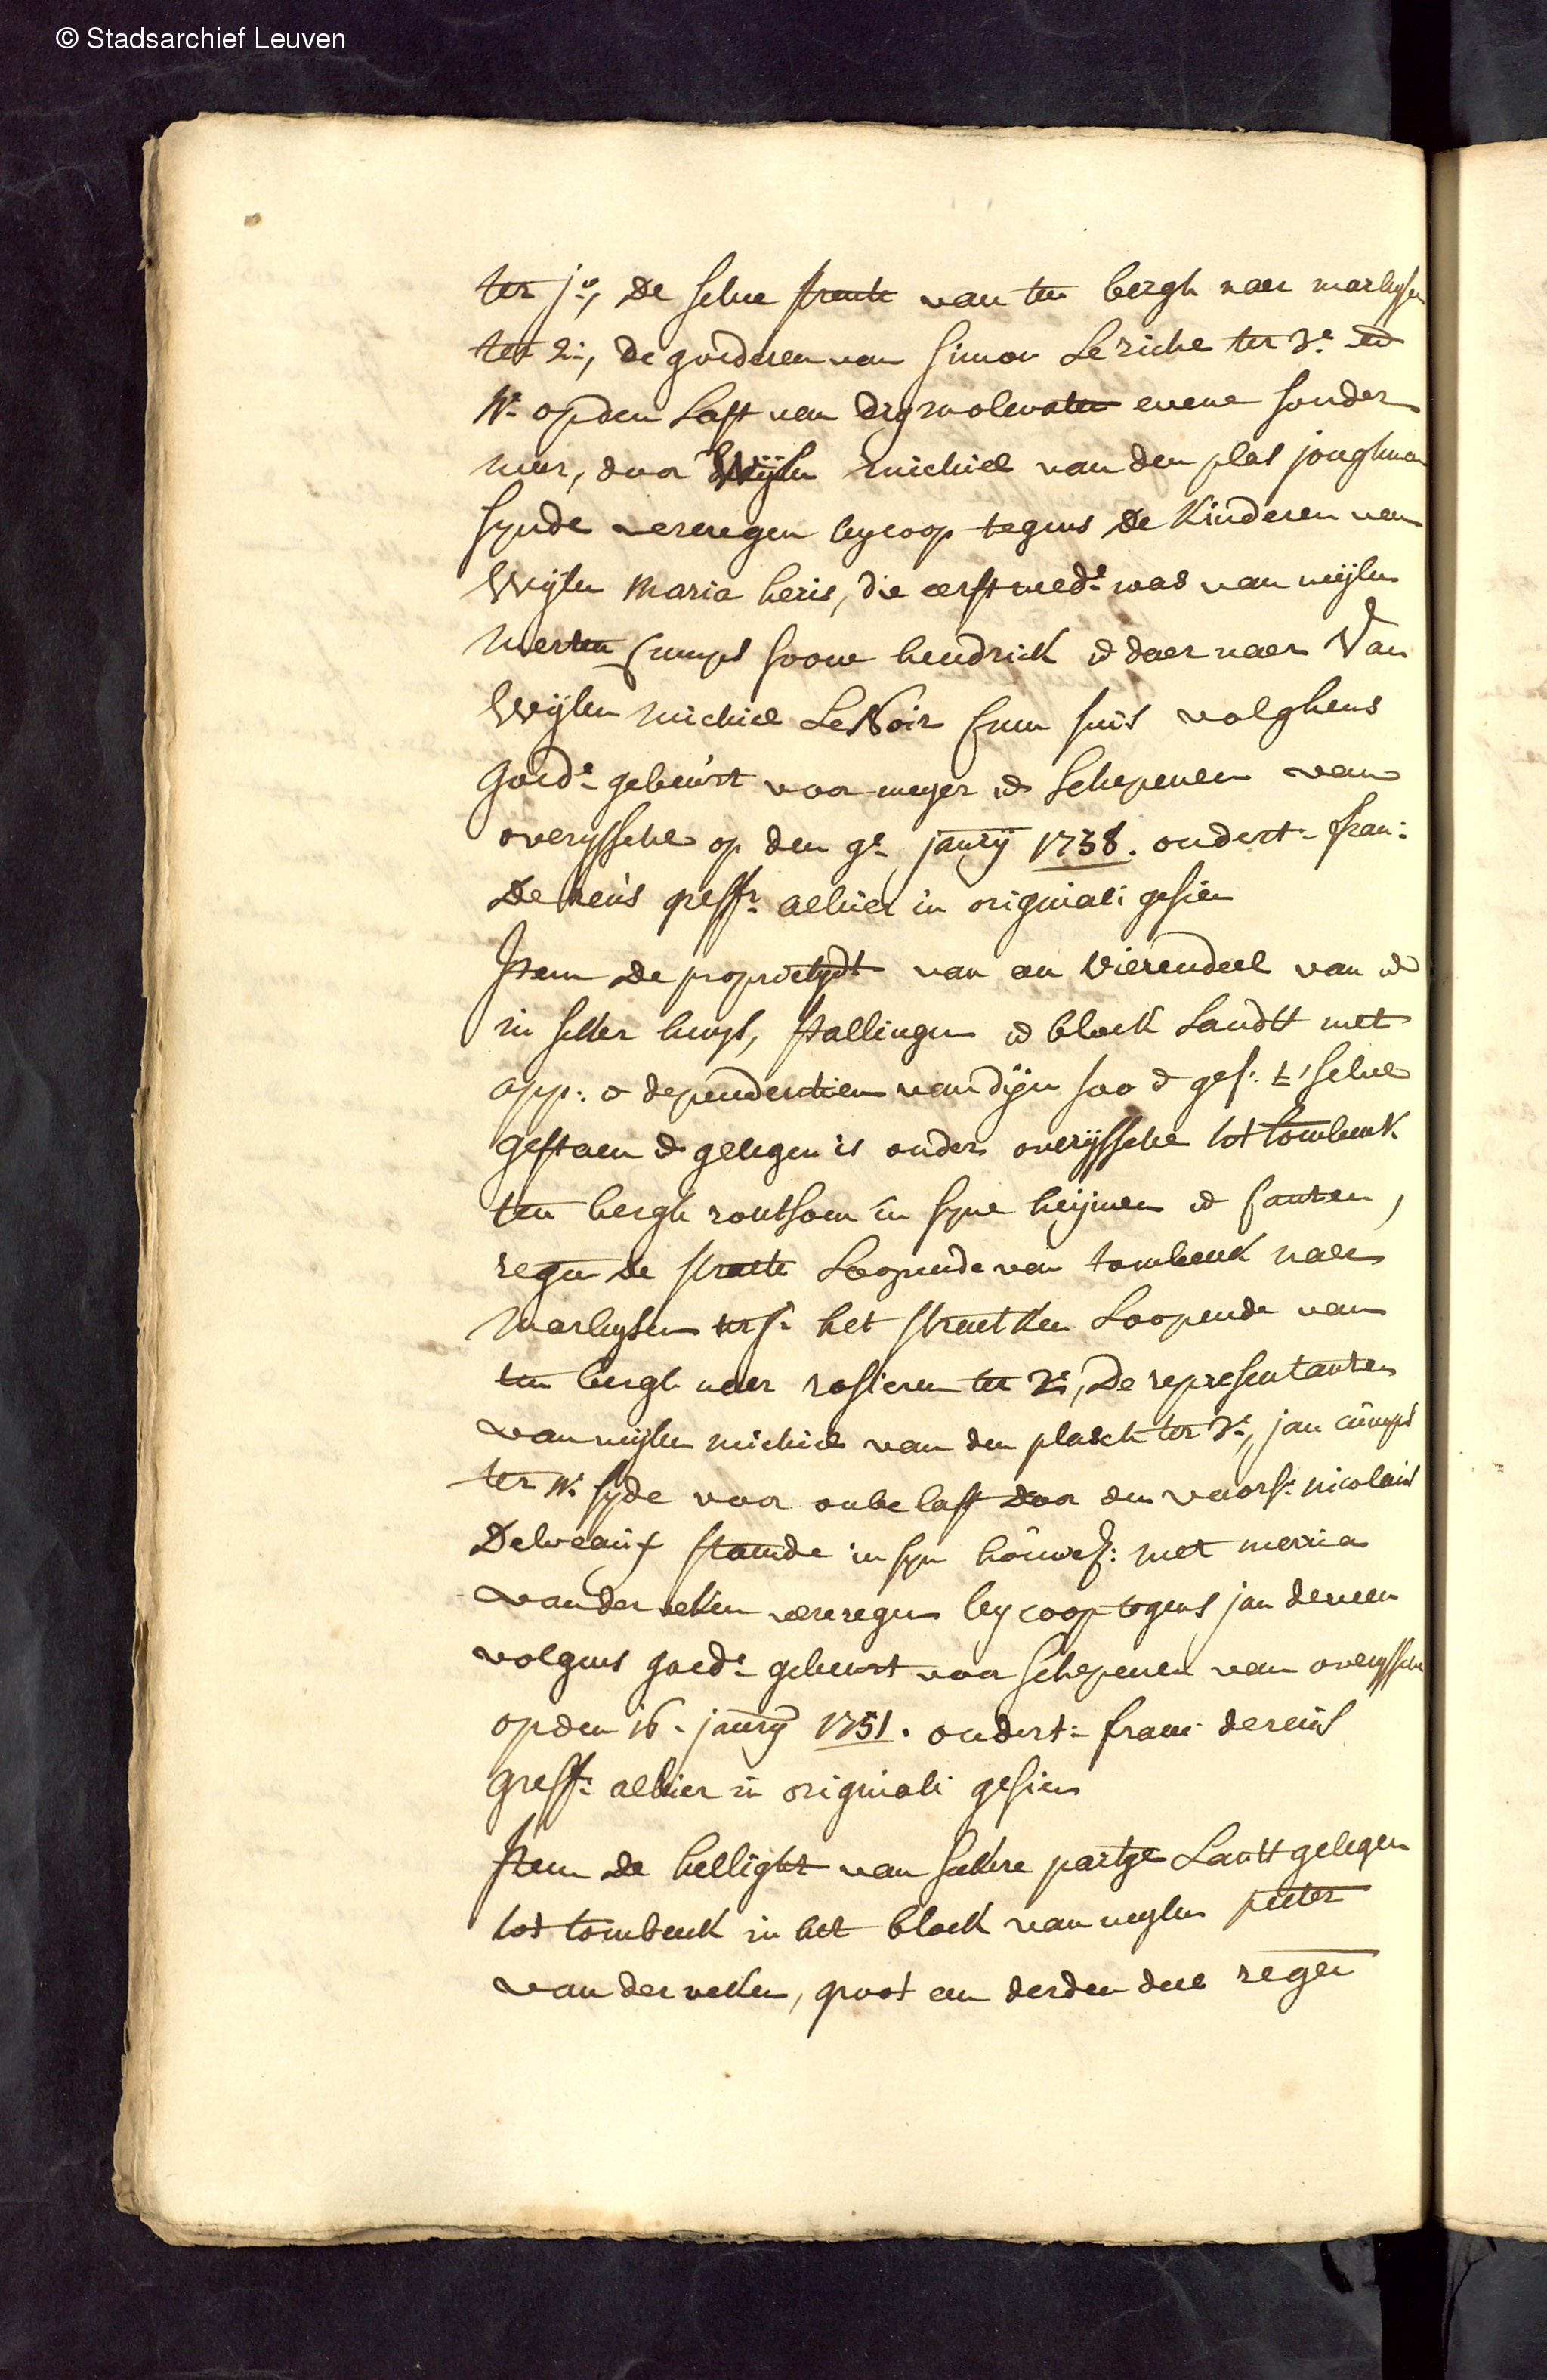 © Stadsarchief Leuven
ter j:e, de selve straete van ten bergh naer marlysen
ter 2:e, de goederen van Simon Leriche ter 3:e en
4:e op den last van dry molevaten evene sonder
meer, door Wijlen michiel van den plas jonghman
synde vercregen by coop tegens de Kinderen van
Wijlen Maria heris, die eerst wed:e was van wijlen
Merten Cumps soone hendrick en daer naer Van
Wijlen Michiel LeNoir Cum suis volghens
Goed:e gebeurt voor meyer en Schepenen van
overyssche op den 9:e janry 1738. ondert: fran:
De reus greff:r alhier in originali gesien
Item de proprietydt van een Vierendeel van en
in seker huys, stallingen en block Landts met
app: & dependentien van dijn soo & gel: t'selve
gestaen & gelegen is onder overyssche tot tombeek
ten bergh rontsom in syne heijmen en canten,
regen de straete Loopende van tombeek naer
Marlysen ter j: het straetken Loopende van
ten bergh naer rosieren ter 2:e, De representanten
van wijlen michiel van den plasch ter 3:e, jan cumps
ter 4:e syde voor onbelast door den voors: nicolais
Delveaux staende in syn houwel: met merria
van der veken vercregen by coop tegens jan deveen
volgens goed:e gebeurt voor schepenen van overyssche
op den 16: janry 1751. ondert: fran: dereus
greff: alhier in originali gesien
Item de hellight van sekere partye Lantt gelegen
tot tombeek in het block van wylen peeter
van der veken, groot een derden deel regen